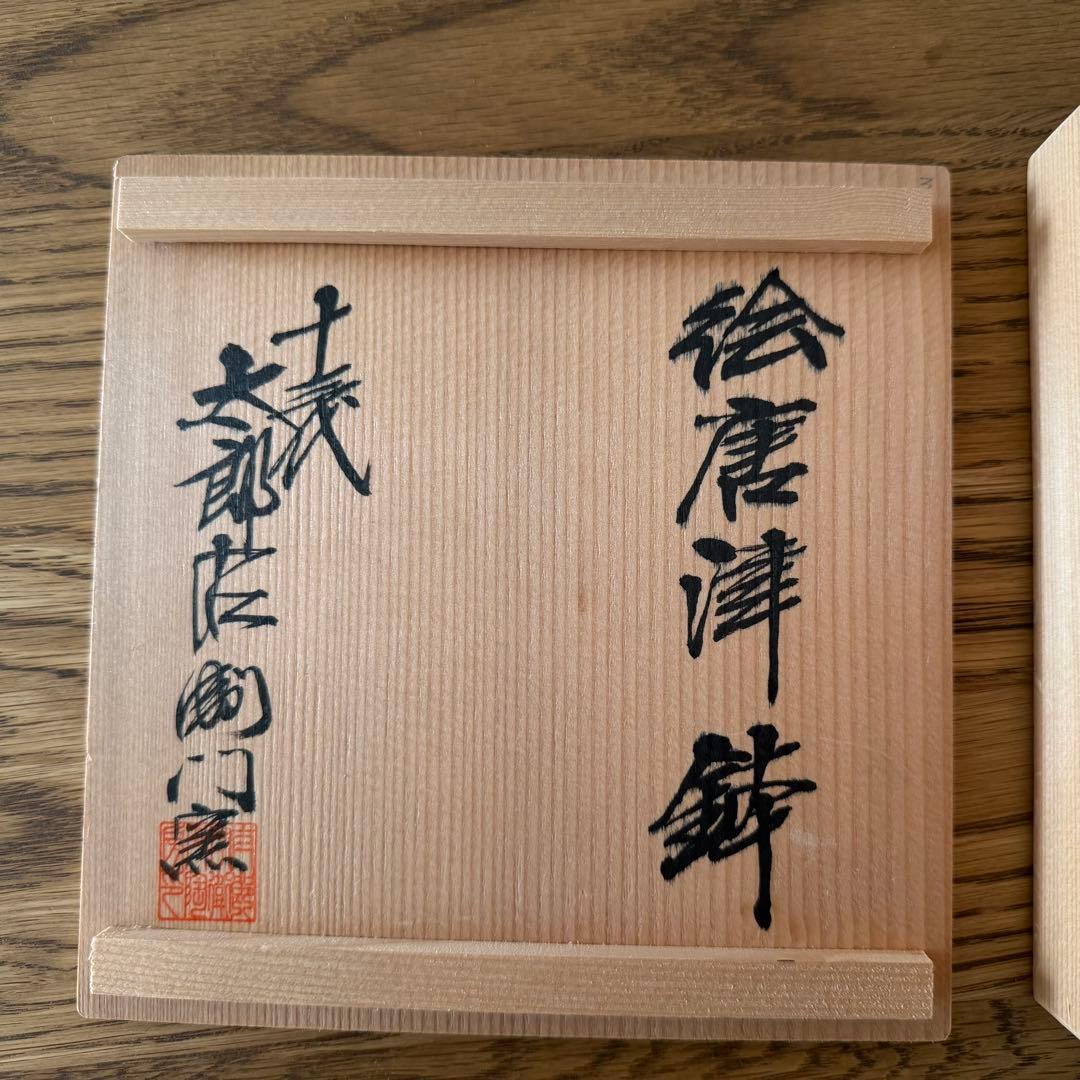 絵唐津鉢
十三代
太郎右衛門窯